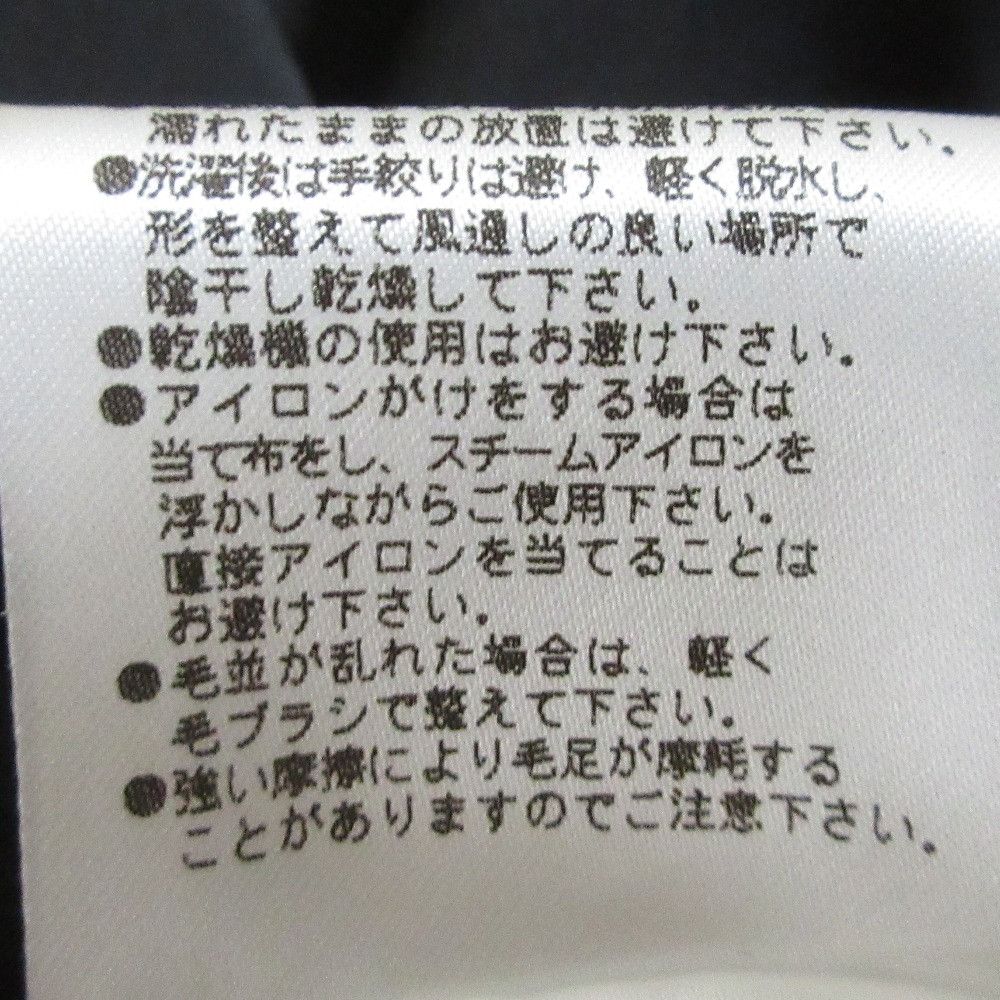 濡れたままの放置は避けて下さい。
●洗濯後は手絞りは避け、軽く脱水し、
形を整えて風通しの良い場所で
陰干し乾燥して下さい。
●乾燥機の使用はお避け下さい。
●アイロンがけをする場合は
当て布をし、スチームアイロンを
浮かしながらご使用下さい。
直接アイロンを当てることは
お避け下さい。
●毛並が乱れた場合は、軽く
毛ブラシで整えて下さい。
●強い摩擦により毛足が摩耗する
ことがありますのでご注意下さい。